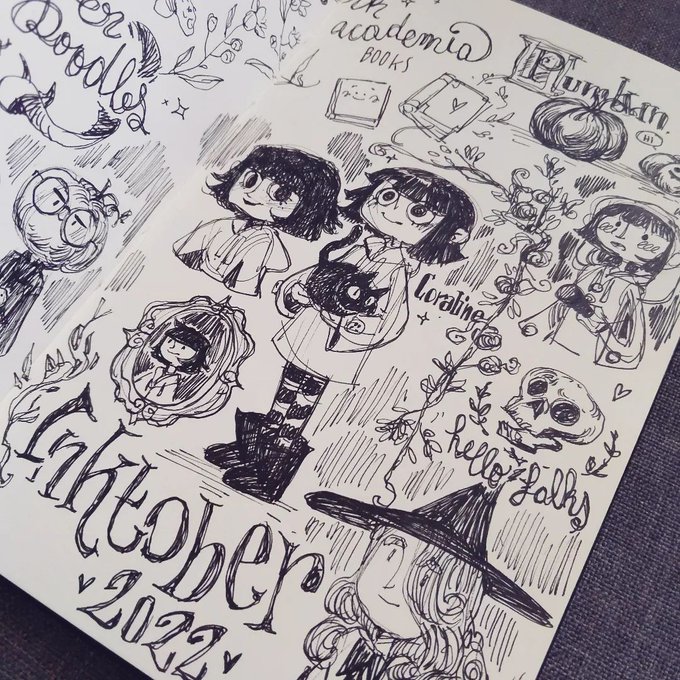 Doodles
academia
BOOKS
Pumpkin
HI
Coraline
hello folks
Inktober
2022